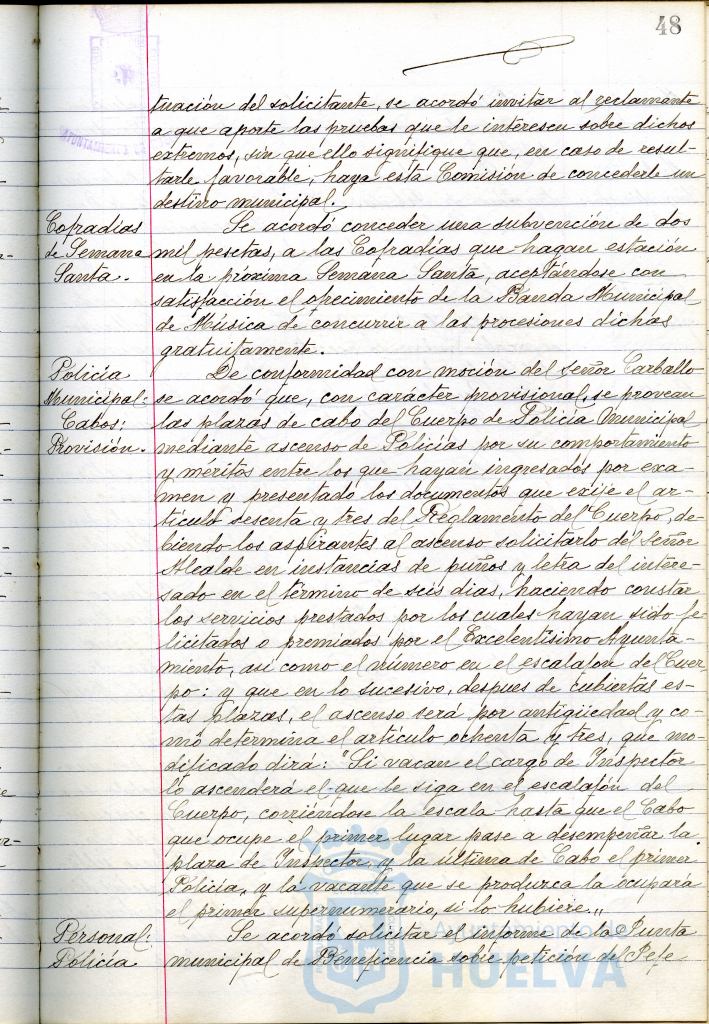 48
tuación del solicitante, se acordó invitar al reclamante
a que aporte las pruebas que le interesen sobre dichos
extremos, sin que ello signifique que, en caso de resul-
tarle favorable, haya esta Comisión de concederle un
destino municipal.
Cofradias
de Semana
Santa.
Se acordó conceder una subvención de dos
mil pesetas, a las Cofradías que hagan estación
en la próxima Semana Santa, aceptándose con
satisfacción el ofrecimiento de la Banda Municipal
de Música de concurrir a las procesiones dichas
gratuitamente.
Policía
Municipal:
Cabos:
Provisión.
De conformidad con moción del señor Carballo
se acordó que, con carácter provisional, se provean
las plazas de cabo del Cuerpo de Policía Municipal
mediante ascenso de Policías por su comportamiento
y méritos entre los que hayan ingresados por exa-
men y presentado los documentos que exije el ar-
tículo sesenta y tres del Reglamento del Cuerpo, de-
biendo los aspirantes al ascenso solicitarlo del Señor
Alcalde en instancias de puños y letra del intere-
sado en el término de seis dias, haciendo constar
los servicios prestados por los cuales hayan sido fe-
licitados o premiados por el Excelentísimo Ayunta-
miento, asi como el número en el escalafón del Cuer-
po: y que en lo sucesivo, despues de cubiertas es-
tas plazas, el ascenso será por antigüedad y co-
mo determina el artículo ochenta y tres, que mo-
dificado dirá: "Si vacan el cargo de Inspector
lo ascenderá el que le siga en el escalafón del
Cuerpo, corriéndose la escala hasta que el Cabo
que ocupe el primer lugar pase a desempeñar la
plaza de Inspector y la última de Cabo el primer
Policía, y la vacante que se produzca la ocupará
el primer supernumerario, si lo hubiere.,,
Personal:
Policía
Se acordó solicitar el informe de la Junta
municipal de Beneficencia sobre petición del Jefe
Ayuntamiento de
HUELVA